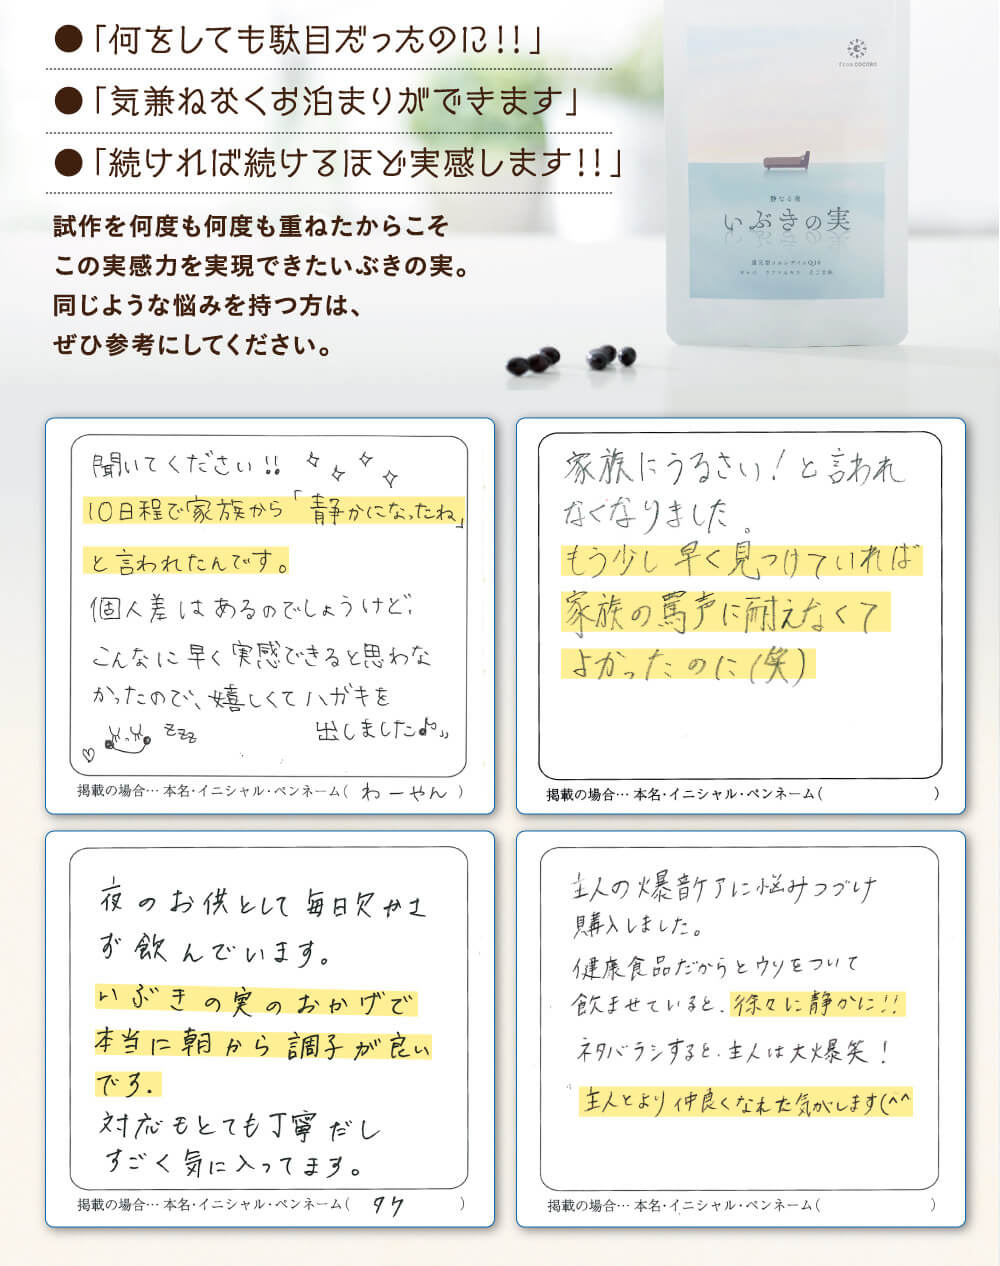 ●「何をしても駄目だったのに!!」
●「気兼ねなくお泊まりができます」
●「続ければ続けるほど実感します!!」
試作を何度も何度も重ねたからこそ
この実感力を実現できたいぶきの実。
同じような悩みを持つ方は、
ぜひ参考にしてください。
静なる夜
いぶきの実
還元型コエンザイムQ10
聞いてください!!
10日程で家族から「静かになったね」
と言われたんです。
個人差はあるのでしょうけど、
こんなに早く実感できると思わな
かったので、嬉しくてハガキを
出しました♪
zzz
掲載の場合… 本名・イニシャル・ペンネーム( わーやん )
家族にうるさい!と言われ
なくなりました。
もう少し早く見つけていれば
家族の罵声に耐えなくて
よかったのに(笑)
掲載の場合… 本名・イニシャル・ペンネーム( )
夜のお供として毎日欠かさ
ず飲んでいます。
いぶきの実のおかげで
本当に朝から調子が良い
です.
対応もとても丁寧だし
すごく気に入ってます。
掲載の場合… 本名・イニシャル・ペンネーム( タケ )
主人の爆音ケアに悩みつづけ
購入しました。
健康食品だからとウソをついて
飲ませていると、徐々に静かに!!
ネタバラシすると、主人は大爆笑!
主人とより仲良くなれた気がします(^^
掲載の場合… 本名・イニシャル・ペンネーム( )